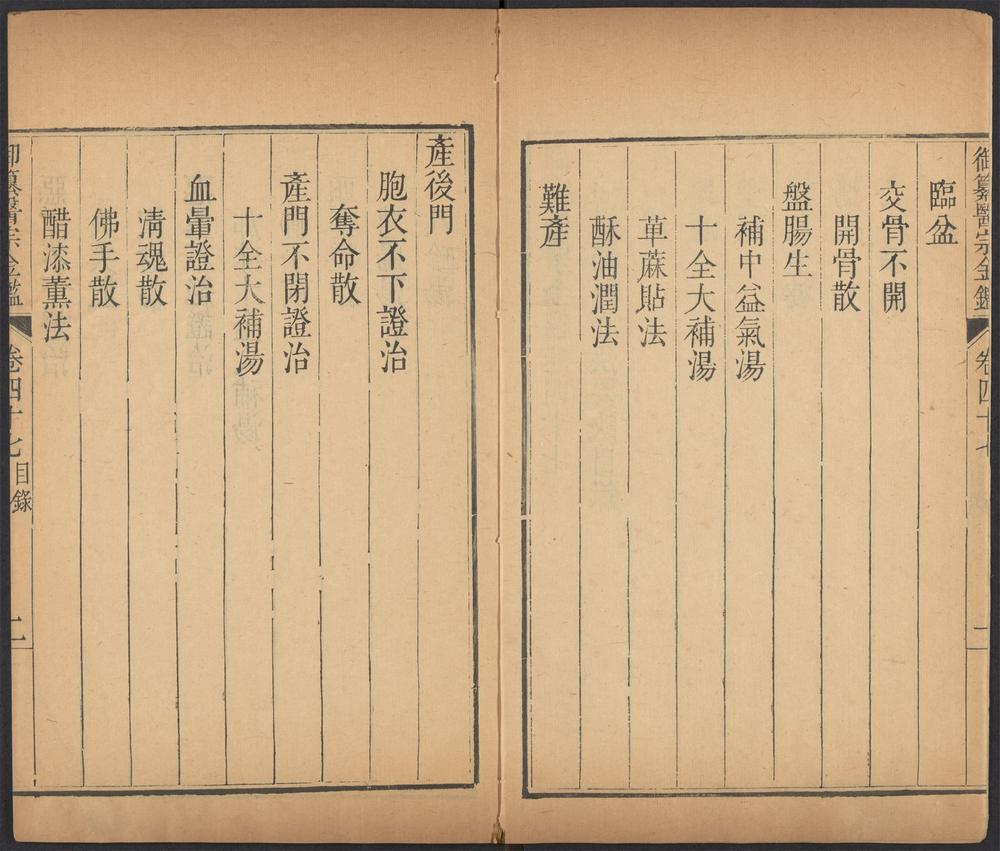 御纂醫宗金鑑 卷四十七 一
臨盆
交骨不開
開骨散
盤腸生
補中益氣湯
十全大補湯
萆蔴貼法
難產
酥油潤法
產後門
胞衣不下證治
奪命散
產門不閉證治
十全大補湯
血暈證治
淸魂散
佛手散
醋漆薰法
御纂醫宗金鑑 卷四十七 目錄 二